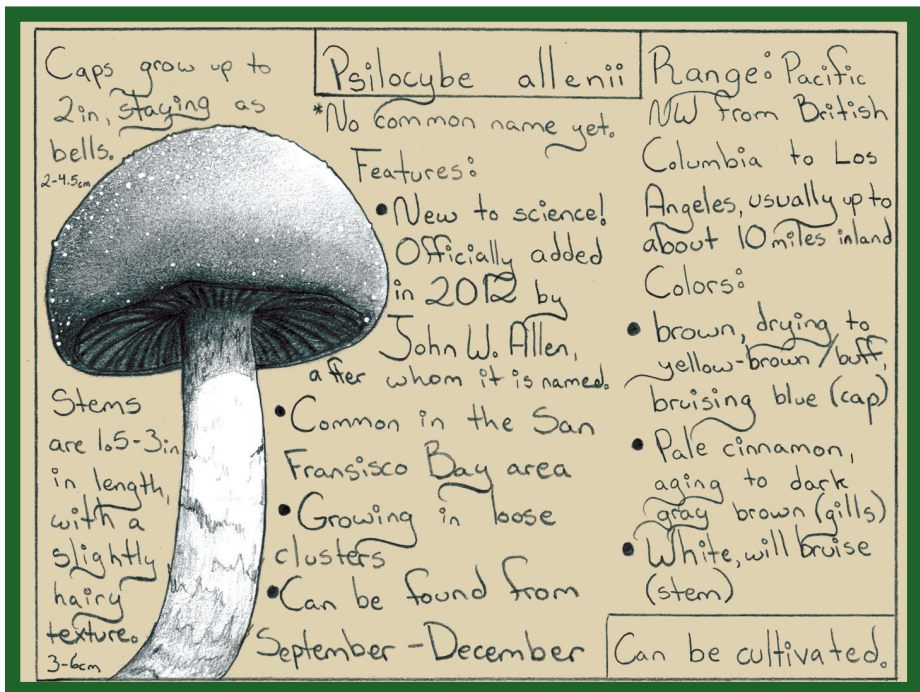 Caps grow up to
2in, staying as
bells.
2-4.5cm
Stems
are 1.5-3in
in length,
with a
slightly
hairy
texture.
3-6cm
Psilocybe allenii
*No common name yet.
Features:
•New to science!
Officially added
in 2012 by
John W. Allen,
after whom it is named.
•Common in the San
Fransisco Bay area
•Growing in loose
clusters
•Can be found from
September-December
Range: Pacific
NW from British
Columbia to Los
Angeles, usually up to
about 10 miles inland
Colors:
• brown, drying to
yellow-brown/buff,
bruising blue (cap)
• Pale cinnamon,
aging to dark
gray brown (gills)
• White, will bruise
(stem)
Can be cultivated.